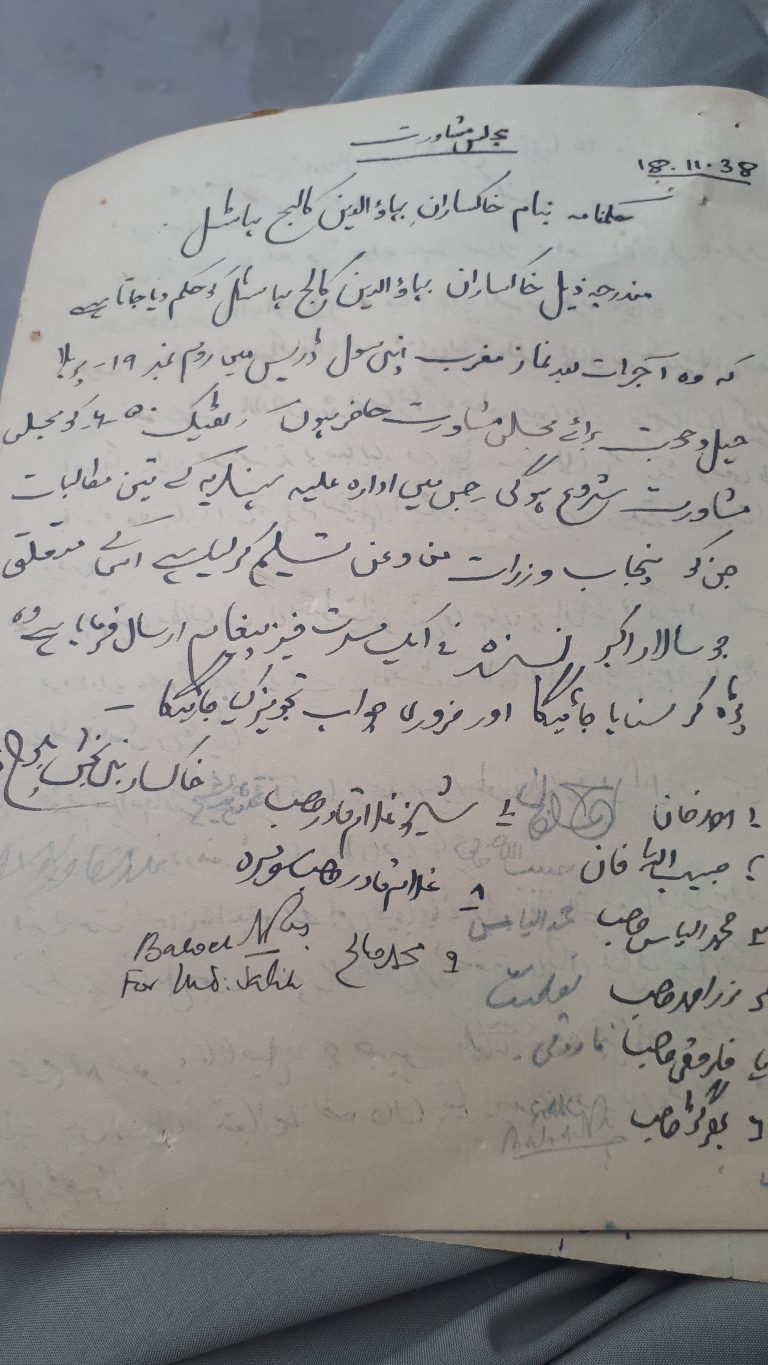 مجلس مشاورت
18.11.38
حکمنامہ بنام خاکساران بہاؤالدین کالج ہاسٹل
مندرجہ ذیل خاکساران بہاؤالدین کالج ہاسٹل کو حکم دیا جاتا ہے
کہ وہ آج رات بعد نماز مغرب اپنی سول ڈریس میں روم نمبر ۱۹ - پر بلا
حیل و حجت برائے مجلس مشاورت حاضر ہوں۔ ٹھیک ۵۰-۶ کو مجلس
مشاورت شروع ہوگی۔ جس میں ادارہ علیہ ہندیہ کے تین مطالبات
جن کو پنجاب وزرات من وعن تسلیم کر لیا ہے اس کے متعلق
جو سالار اکبر نے ایک مسرت خیز پیغام ارسال فرمایا ہے وہ
پڑھ کر سنایا جائیگا اور ضروری جواب تجویز کیا جائیگا –
خاکسار
۱ احمد خان
۷ شیخ غلام قادر صاحب
۲ حبیب اللہ خان
حبیب اللہ
۸ غلام قادر صاحب
۳ محمد الیاس صاحب
محمد الیاس
۹ محمد صالح
Baloch
For Md. Salih
۴ نذر احمد صاحب
۵ فاروقی صاحب
فاروقی
۶ صاحب